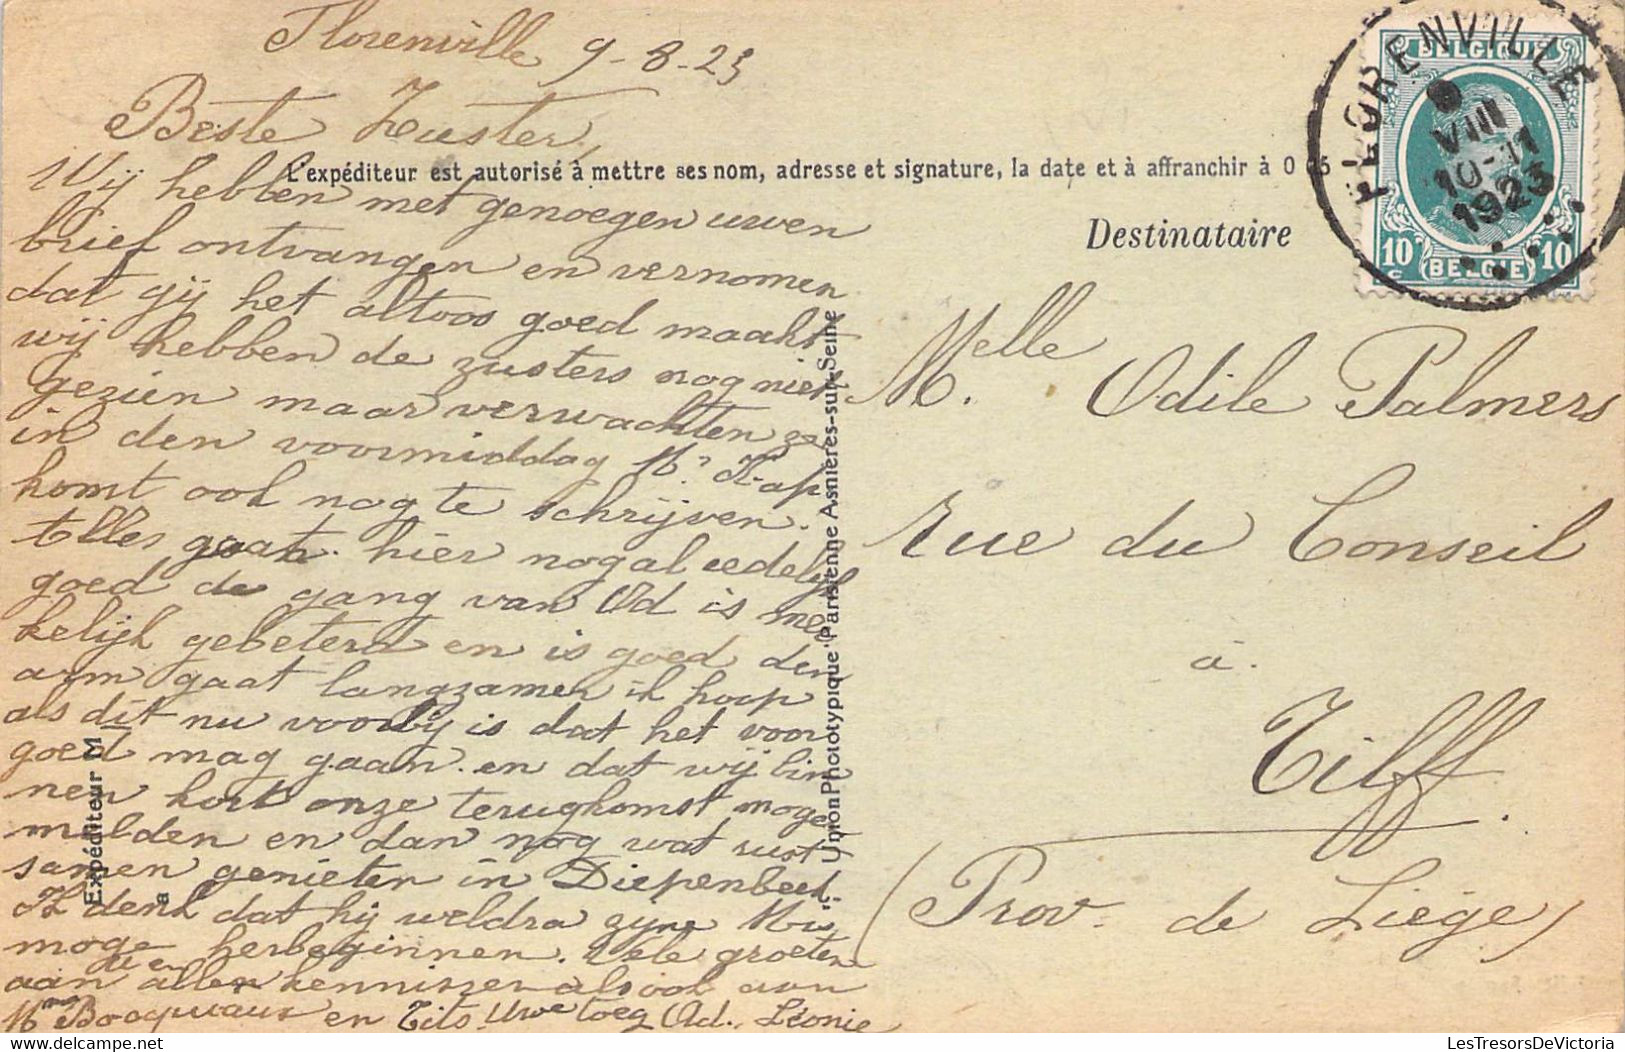 Florenville 9-8-23
Beste Zuster,
Wij hebben met genoegen uwen
brief ontvangen en vernomen
dat gij het altoos goed maakt
wij hebben de zusters nog niet
gezien maar verwachten ze
in den voormiddag Mr Kap
komt ook nog te schrijven.
Alles gaat hier nogal redelijk
goed de gang van Od is mer
kelijk gebeterd en is goed den
arm gaat langzamer ik hoop
als dit nu voorbij is dat het voor
goed mag gaan en dat wij bin
nen kort onze terugkomst moge
melden en dan nog wat rust
samen genieten in Diepenbeek.
Ik denk dat hij weldra zijne
moge herbeginnen. Vele groeten
aan alle de kennissen alsook aan
Mme en Tits. Uwe toeg Od., Léonie
L'expéditeur est autorisé à mettre ses nom, adresse et signature, la date et à affranchir à 0 05
Destinataire
Melle Odile Palmers
Rue du Conseil
à
Tilff.
(Prov. de Liège)
Expéditeur M
a
Union Phototypique Parisienne Asnières-sur-Seine
FLORENVILLE
9
VIII
10-11
1923
BELGIQUE
10 c
BELGIË
10
LesTresorsDeVictoria.com